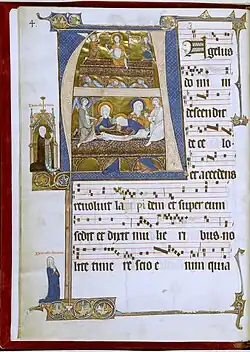 4.
Angelus
do mi ni
descendit
de ce lo
et accedens
revoluit la pi dem et super eum
sedit et dixit mu li e ri bus no
lite time re scio e nim quia